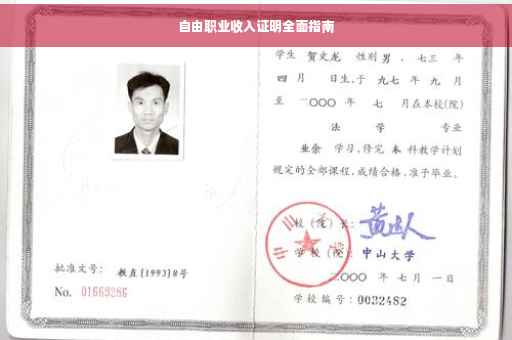 自由职业收入证明全面指南
学生 贺文龙 性别 男 、七三 年
四 月 日生,于 九七 年 九 月
至 二〇〇〇 年 七 月在本校(院)
法 学 专业
业余 学习,修完 本 科教学计划
规定的全部课程,成绩合格,准予毕业。
校(院)长:
学 校(院): 中山大学
二〇〇〇 年 七 月 一 日
学校编号: 0032482
批准文号: 教直(1993)8号
No. 01669286